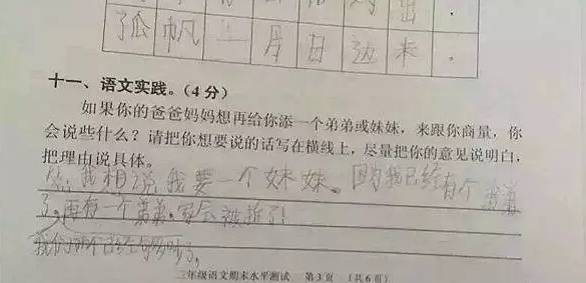 出.
孤帆一片日边来.
十一、语文实践。(4分)
如果你的爸爸妈妈想再给你添一个弟弟或妹妹，来跟你商量，你
会说些什么？请把你想要说的话写在横线上，尽量把你的意见说明白，
把理由说具体。
我相说我要一个妹妹。因为我已经有个弟弟
了。再有一个弟弟.家会被拆了!
我们
三年级语文期末水平测试 第3页 (共6页)